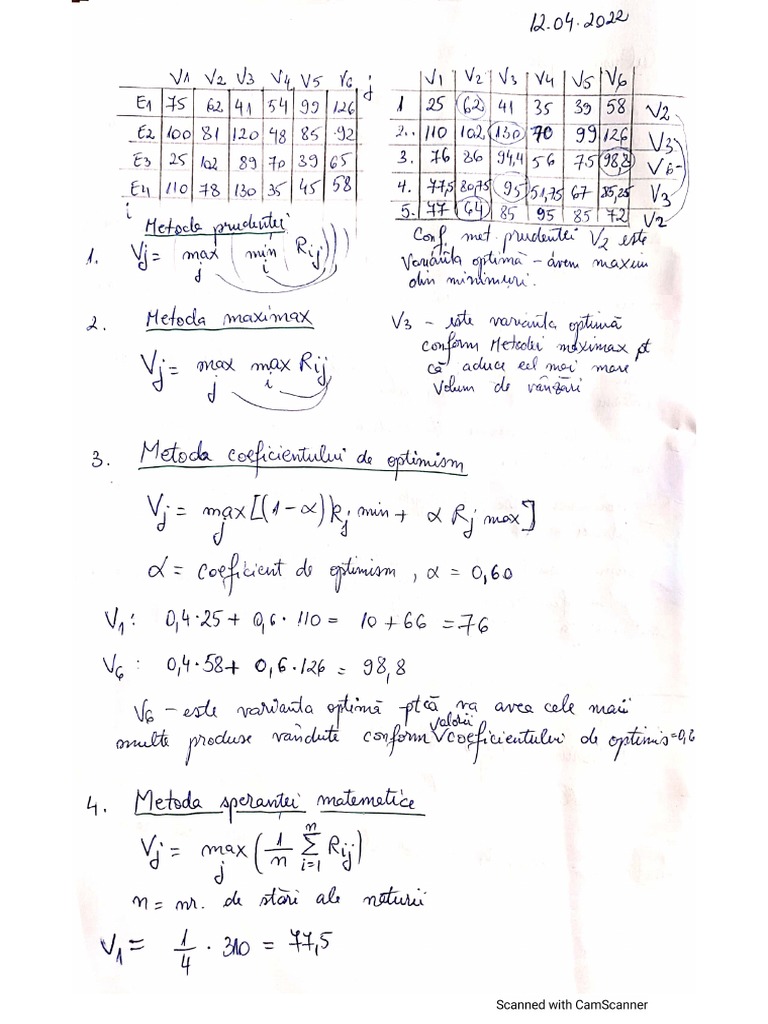 12.04.2022
V1 V2 V3 V4 V5 V6 j
E1 75 62 41 54 99 126
E2 100 81 120 48 85 92
E3 25 102 89 70 39 65
E4 110 78 130 35 45 58
i
V1 V2 V3 V4 V5 V6
1 25 62 41 35 39 58 V2
2. 110 102 130 70 99 126 V3
3. 76 86 94,4 56 75 98,8 V6
4. 77,5 80,75 95 51,75 67 85,25 V3
5. 77 64 85 95 85 72 V2
Metoda prudentei
1. Vj = max j (min i Rij)))
Conf. met. prudentei V2 este
varianta optimă - avem maxim
din minimuri.
2. Metoda maximax
Vj = max j max i Rij
V3 - este varianta optimă
conform Metodei maximax pt
că aduce cel mai mare
volum de vânzări
3. Metoda coeficientului de optimism
Vj = max j [(1-α) Rj min + α Rj max]
α = coeficient de optimism, α = 0,60
V1: 0,4·25 + 0,6·110 = 10 + 66 = 76
V6: 0,4·58 + 0,6·126 = 98,8
V6 - este varianta optimă ptcă va avea cele mai
multe produse vândute conform valorii coeficientului de optimis=0,6
4. Metoda sperantei matematice
Vj = max j (1/n Σ i=1 n Rij)
n = nr. de stări ale naturii
V1 = 1/4 · 310 = 77,5
Scanned with CamScanner